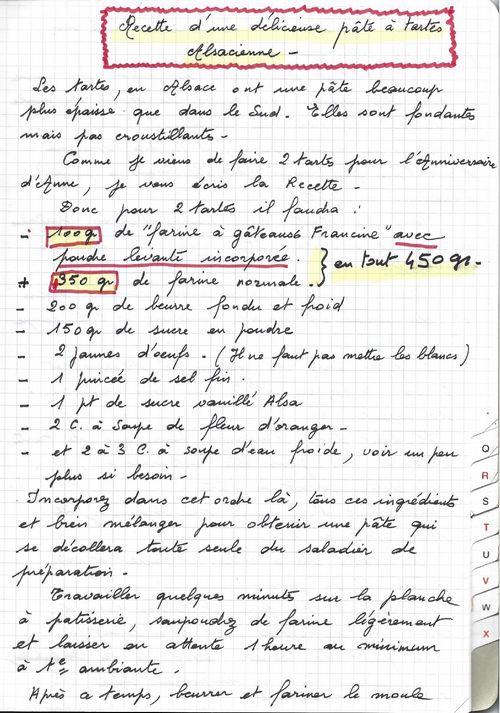 Recette d'une délicieuse pâte à tartes
Alsacienne -
Les tartes, en Alsace ont une pâte beaucoup
plus épaisse que dans le Sud. Elles sont fondantes
mais pas croustillantes -
Comme je viens de faire 2 tartes pour l'Anniversaire
d'Anne, je vous écris la Recette -
Donc pour 2 tartes il faudra :
- 100 gr de "farine à gâteaux Francine" avec
poudre levante incorporée.
+ 350 gr de farine normale. } en tout 450 gr -
- 200 gr de beurre fondu et froid
- 150 gr de sucre en poudre
- 2 jaunes d'oeufs. (Il ne faut pas mettre les blancs)
- 1 pincée de sel fin.
- 1 pt de sucre vanillé Alsa
- 2 C. à Soupe de fleur d'oranger -
- et 2 à 3 C. à soupe d'eau froide, voir un peu
plus si besoin -
Incorporez dans cet ordre là, tous ces ingrédients
et bien mélanger pour obtenir une pâte qui
se décollera toute seule du saladier de
préparation -
Travailler quelques minutes sur la planche
à patisserie, saupoudrez de farine légèrement
et laisser en attente 1 heure au minimum
à te ambiante.
Après ce temps, beurrer et fariner le moule
Q
R
S
T
U
V
W
X